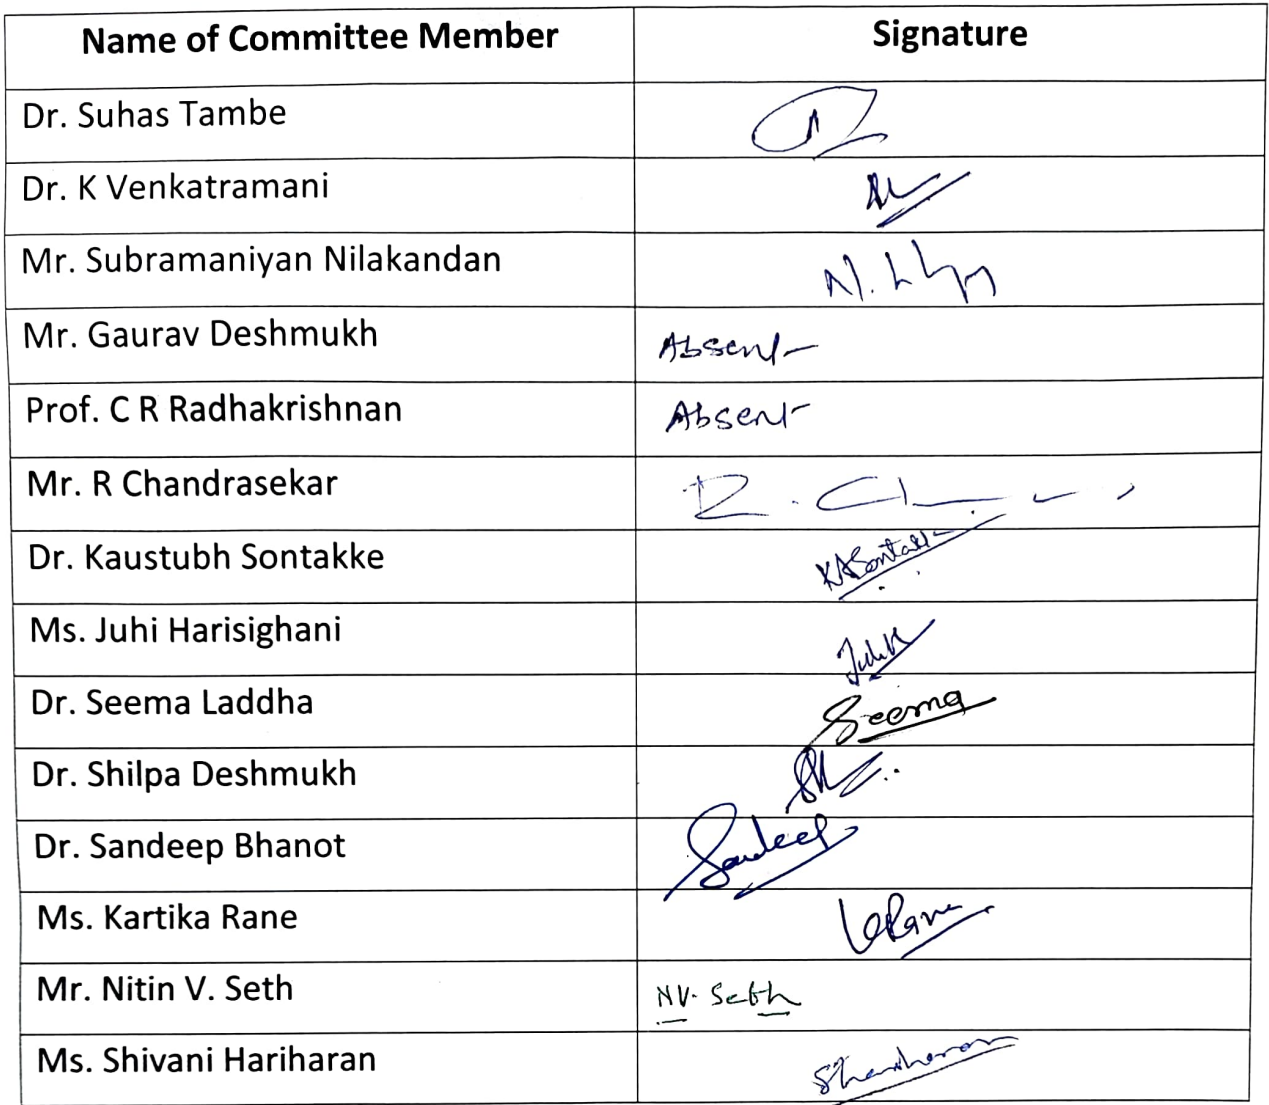 Name of Committee Member Signature
Dr. Suhas Tambe
Dr. K Venkatramani
Mr. Subramaniyan Nilakandan
Mr. Gaurav Deshmukh Absent
Prof. C R Radhakrishnan Absent
Mr. R Chandrasekar
Dr. Kaustubh Sontakke
Ms. Juhi Harisighani
Dr. Seema Laddha Seema
Dr. Shilpa Deshmukh
Dr. Sandeep Bhanot Sandeep
Ms. Kartika Rane
Mr. Nitin V. Seth NV. Seth
Ms. Shivani Hariharan